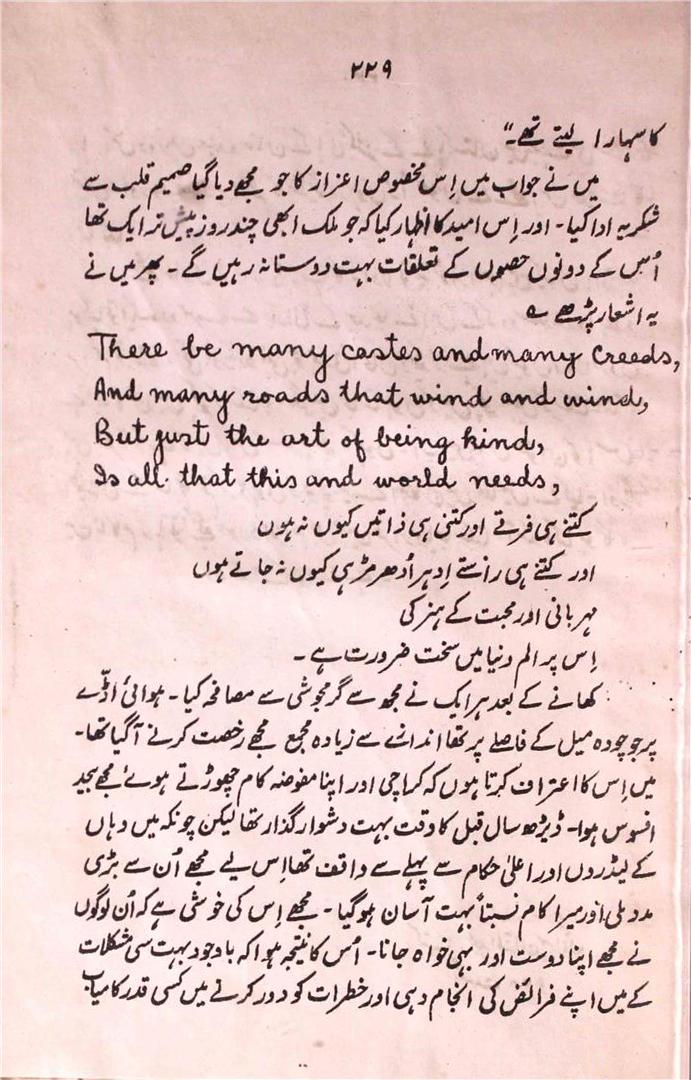 ۲۲۹
کا سہارا لیتے تھے۔"
میں نے جواب میں اِس مخصوص اعزاز کا جو مجھے دیا گیا صمیم قلب سے
شکریہ ادا کیا۔ اور اِس امید کا اظہار کیا کہ جو ملک ابھی چند روز پیش تر ایک تھا
اُس کے دونوں حصوں کے تعلقات بہت دوستانہ رہیں گے۔ پھر میں نے
یہ اشعار پڑھے ؎
There be many castes and many creeds,
And many roads that wind and wind,
But just the art of being kind,
Is all that this and world needs,
کتنے ہی فرقے اور کتنی ہی ذاتیں کیوں نہ ہوں
اور کتنے ہی راستے اِدہر اُدھر مڑ ہی کیوں نہ جاتے ہوں
مہربانی اور محبت کے ہنر کی
اِس پر الم دنیا میں سخت ضرورت ہے۔
کھانے کے بعد ہر ایک نے مجھ سے گرمجوشی سے مصافحہ کیا۔ ہوائی اڈّے
پر جو چودہ میل کے فاصلے پر تھا اندازے سے زیادہ مجمع مجھے رخصت کرنے آگیا تھا۔
میں اِس کا اعتراف کرتا ہوں کہ کراچی اور اپنا مفوضہ کام چھوڑتے ہوئے مجھے بیحد
افسوس ہوا۔ ڈیڑھ سال قبل کا وقت بہت دشوار گذار تھا لیکن چونکہ میں وہاں
کے لیڈروں اور اعلیٰ حکام سے پہلے سے واقف تھا اِس لیے مجھے اُن سے بڑی
مدد ملی اور میرا کام نسبتاً بہت آسان ہو گیا۔ مجھے اِس کی خوشی ہے کہ اُن لوگوں
نے مجھے اپنا دوست اور بہی خواہ جانا۔ اُس کا نتیجہ ہوا کہ باوجود بہت سی مشکلات
کے میں اپنے فرائض کی انجام دہی اور خطرات کو دور کرنے میں کسی قدر کامیاب